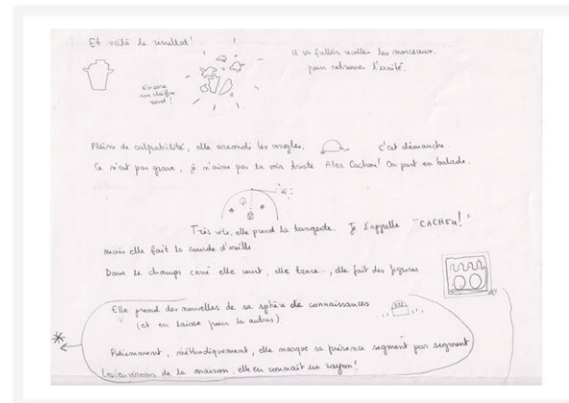 Et voilà le résultat !
il va falloir recoller les morceaux
pour retrouver l'unité.
Encore
un chiffre
rond !
Pleine de culpabilité, elle arrondi les angles. c'est dimanche.
Ce n'est pas grave, je n'aime pas la voir triste. Allez Cachou ! On part en balade.
Très vite, elle prend la tangente. Je l'appelle "CACHOU !"
mais elle fait la sourde d'oreille.
Dans le champs carré elle court, elle trace, elle fait des figures
Elle prend des nouvelles de sa sphère de connaissances
(et en laisse pour les autres)
Patiemment, méthodiquement, elle marque sa présence segment par segment
Les environs de la maison, elle en connait un rayon !